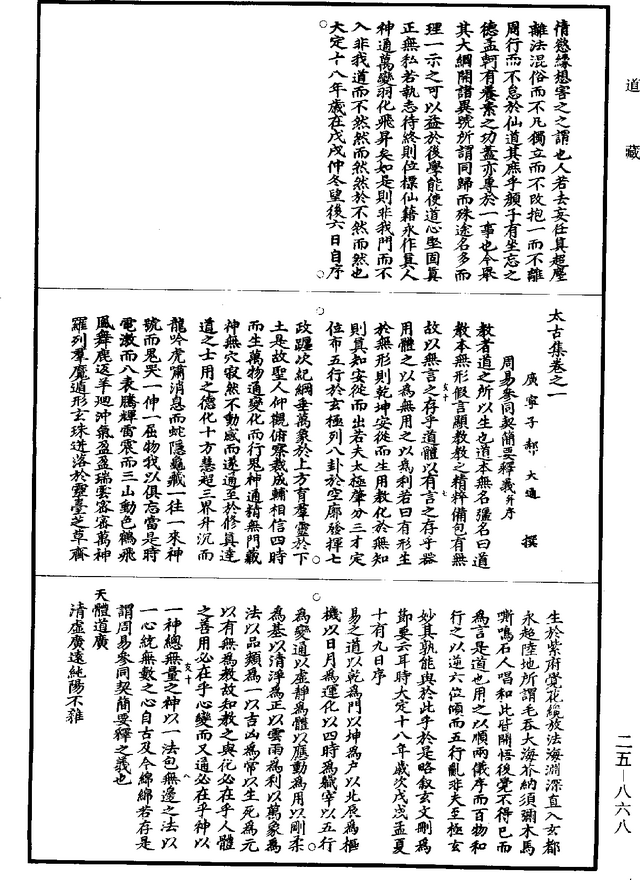 道藏
情慾緣想害之之謂也人若去妄任真超塵
離法混俗而不凡獨立而不改抱一而不離
周行而不怠於仙道其庶乎顏子有坐忘之
德孟軻有養素之功蓋亦專於一事也今舉
其大綱開諸異號所謂同歸而殊途名多而
理一示之可以益於後學能使道心堅固真
正無私若執志待終則位標仙籍永作真人
神通萬變羽化飛昇矣如是則非我門而不
入非我道而不然然而然然於不然而然也
大定十八年歲在戊戌仲冬望後六日自序
太古集卷之一
廣寧子郝大通撰
周易參同契簡要釋義并序
教者道之所以生也道本無名彊名曰道
教本無形假言顯教教之精粹備包有無
故以無言之存乎道體以有言之存乎器
用體之以為無用之以為利若曰有形生
於無形則乾坤安從而生用教化於無知
則真知安從而出若夫太極肇分三才定
位布五行於玄極列八卦於空廓發揮七
政躔次紀綱垂萬象於上方育羣靈於下
土是故聖人仰觀俯察裁成輔相信四時
而生萬物通變化而行鬼神通精無門藏
神無穴寂然不動感而遂通至於修真達
道之士用之德化十方慧超三界升沉而
龍吟虎嘯消息而蛇隱龜藏一往一來神
號而鬼哭一伸一屈物我以俱忘當是時
電激而八表騰輝雷震而三山動色鶴飛
鳳舞鹿返羊迴沖氣盈盈瑞雲密密萬神
羅列羣魔遁形玄珠迸落於靈臺芝草齊
生於紫府黃花徧放法海淵深直入玄都
永超陸地所謂毛吞大海芥納須彌木馬
嘶鳴石人唱和此皆開悟後覺不得已而
為言是道也用之以順兩儀序而百物和
行之以逆六位傾而五行亂非夫至極玄
妙其孰能與於此乎於是略敘玄文刪為
節要云耳時大定十八年歲次戊戌孟夏
十有九日序
易之道以乾為門以坤為戶以北辰為樞
機以日月為運化以四時為職宰以五行
為變通以虛靜為體以應動為用以剛柔
為基以清淨為正以雲雨為利以萬象為
法以品類為一以吉凶為常以生死為元
以有無為教故知教之與化必在乎人體
之善用必在乎心變而又通必在乎神以
一神總無量之神以一法包無邊之法以
一心統無數之心自古及今綿綿若存是
謂周易參同契簡要釋之義也
天體道廣
清虛廣遠純陽不雜
二五—八六八